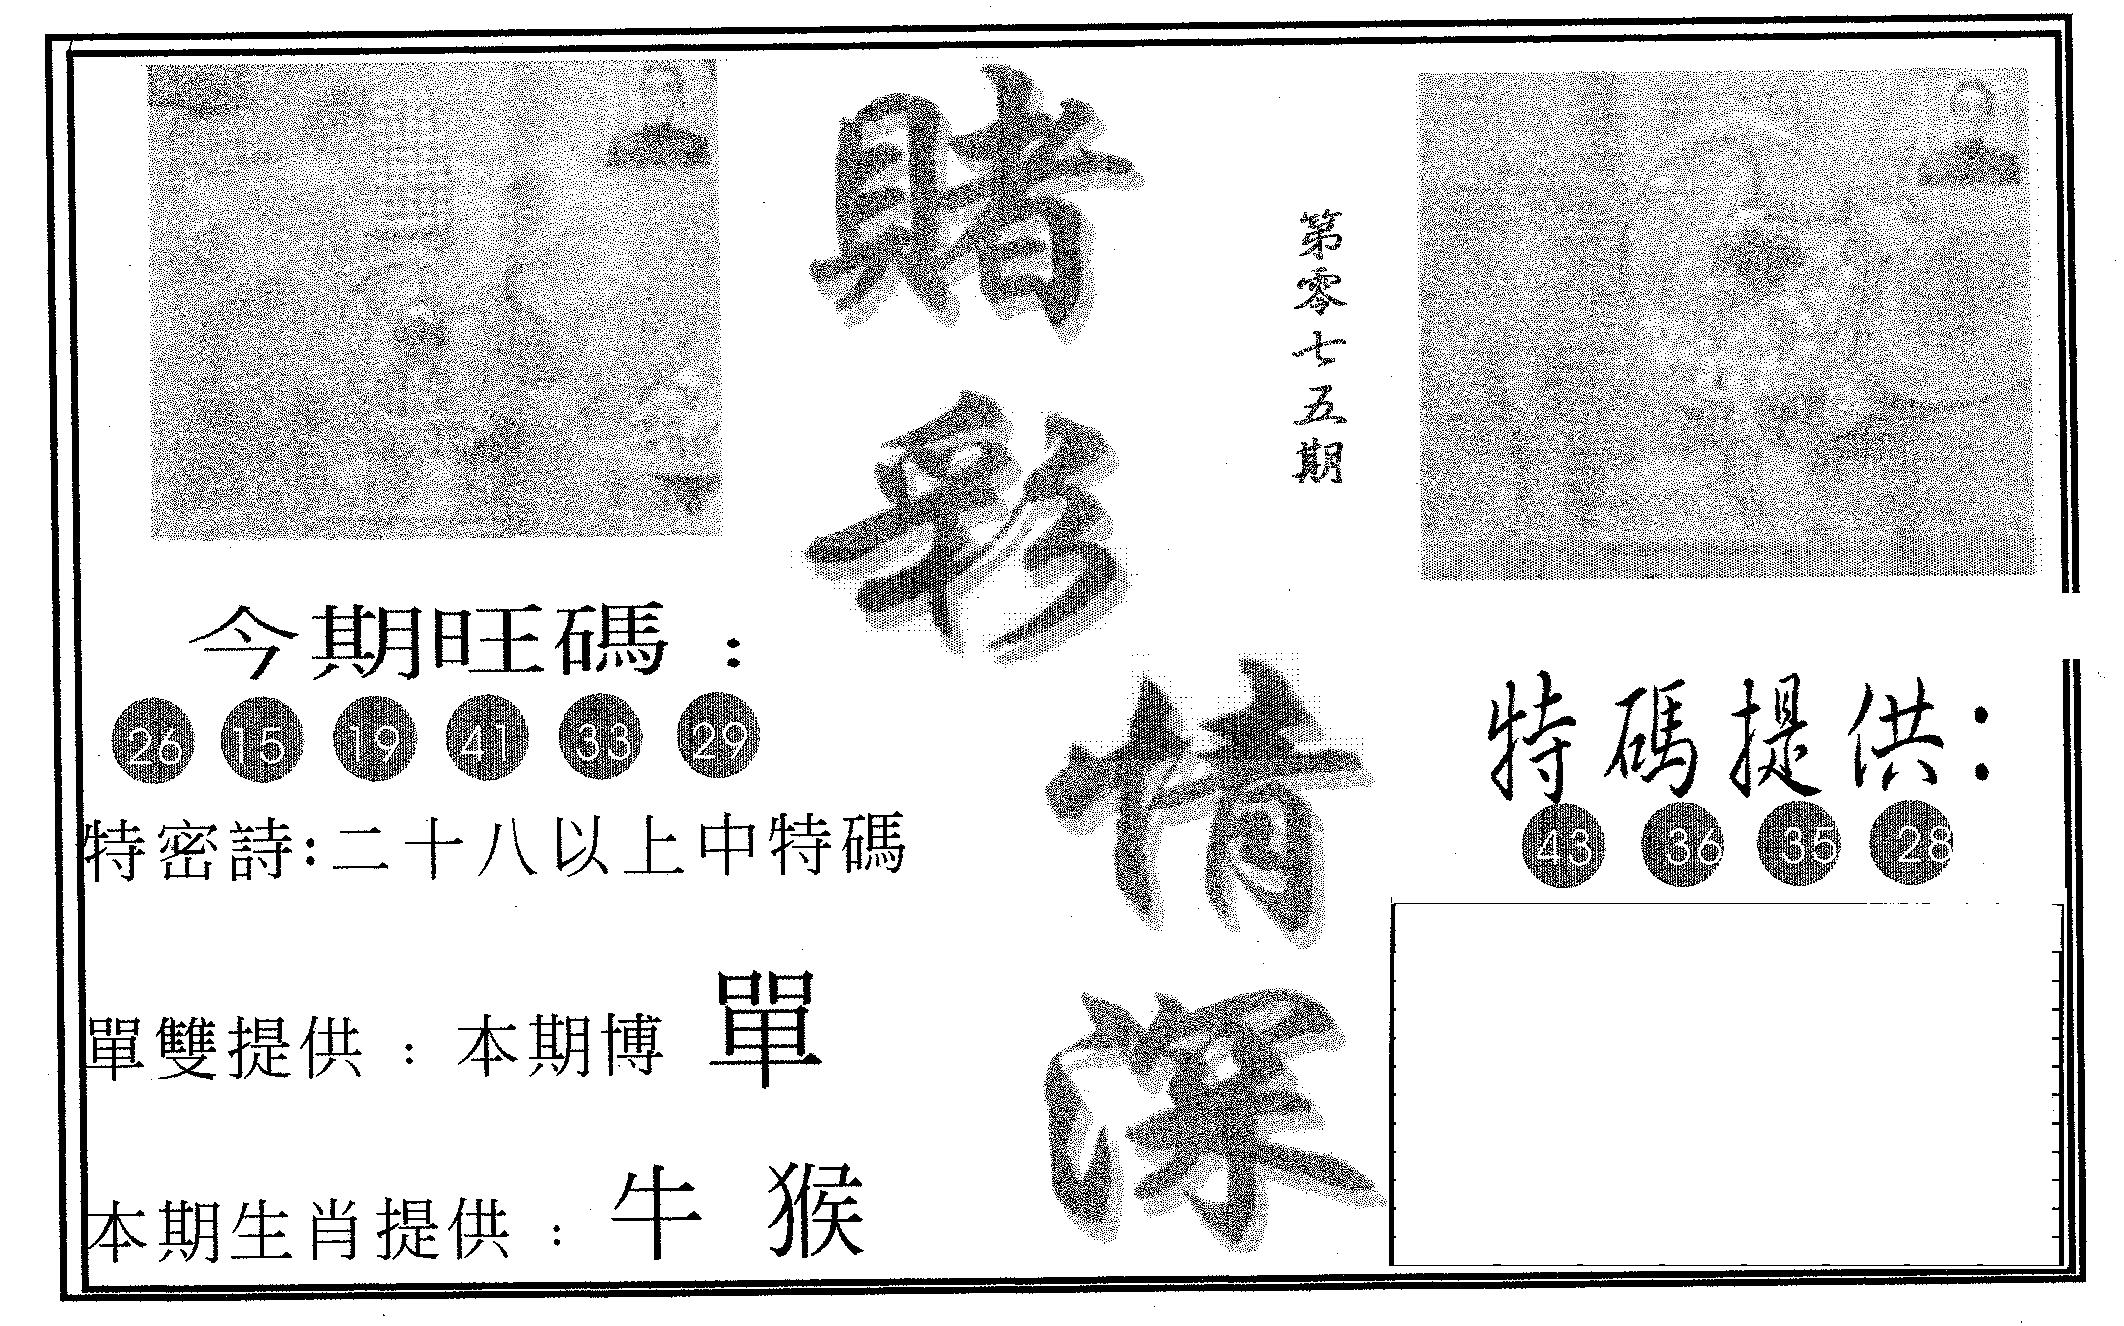 賭彩情深
第零七五期
今期旺碼：
26 15 19 41 33 29
特密詩:二十八以上中特碼
單雙提供：本期博 單
本期生肖提供：牛 猴
特碼提供：
43 36 35 28